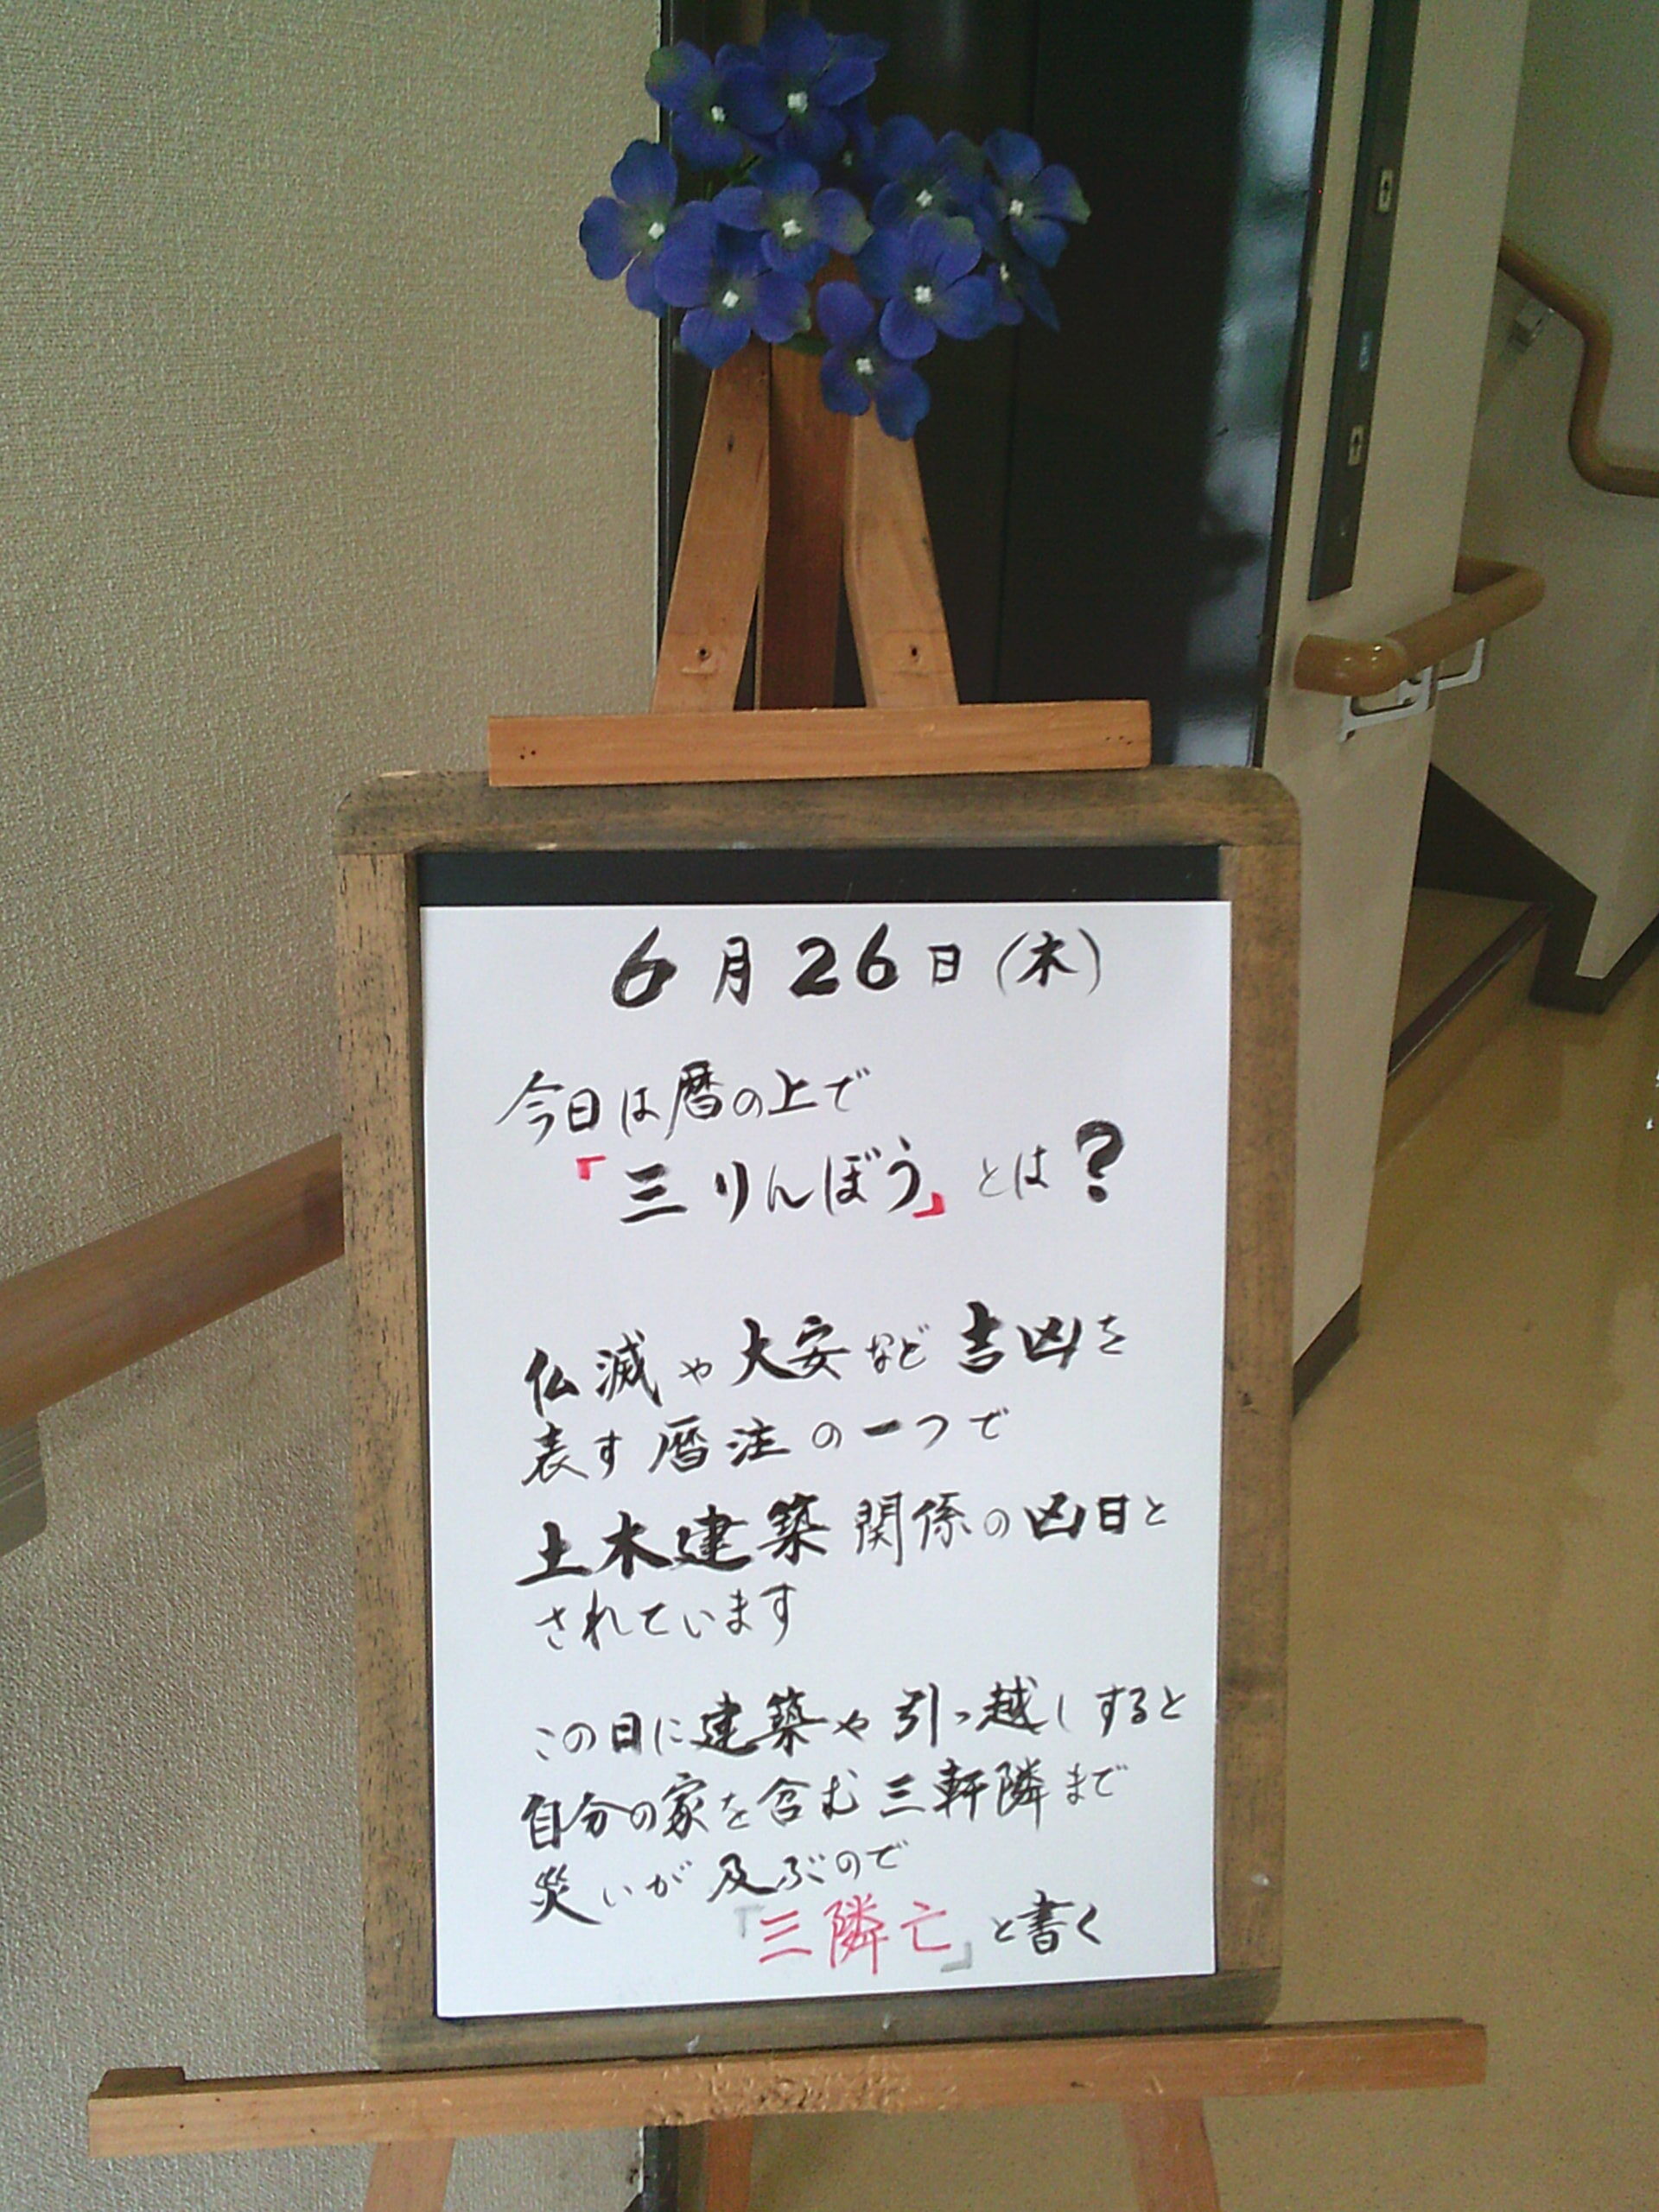 6月26日(木)
今日は暦の上で
「三りんぼう」とは?
仏滅や大安など吉凶を
表す暦注の一つで
土木建築関係の凶日と
されています
この日に建築や引っ越しすると
自分の家を含む三軒隣まで
災いが及ぶので
「三隣亡」と書く